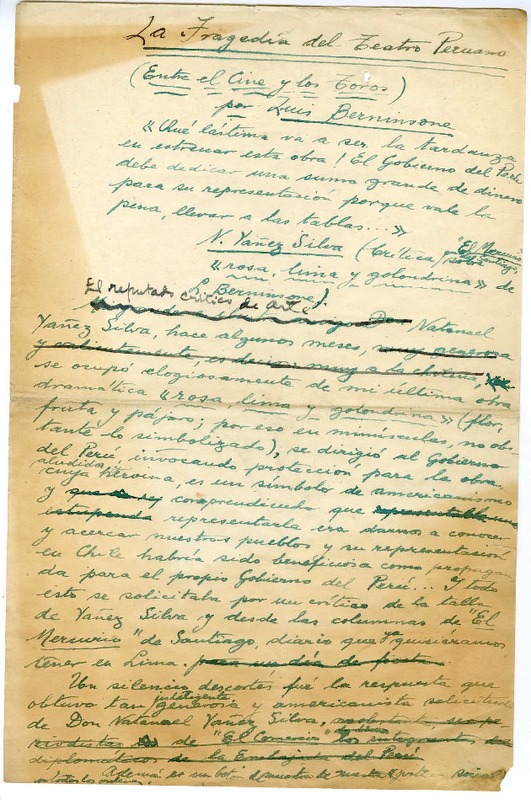 La Tragedia del Teatro Peruano
(Entre el Cine y los Toros)
por Luis Berninsone
«Qué lástima va a ser la tardanza
en estrenar esta obra! El Gobierno del Perú
debe dedicar una suma grande de dinero
para su representación porque vale la
pena, llevar a las tablas...»
N. Yáñez Silva (Crítica "El Mercurio
Santiago,
«rosa, lima y golondrina» de
L. Berninsone).
El reputado crítico de arte
Don Natanael
Yáñez Silva, hace algunos meses, muy generosa
y calientemente, es decir, muy a la chilena,
se ocupó elogiosamente de mi última obra
dramática «rosa, lima y golondrina» (flor,
fruta y pájaro; por eso en minúsculas, no obs-
tante lo simbolizado), se dirigió al Gobierno
del Perú, invocando protección, para la obra
aludida,
cuya heroína, es un símbolo de americanismo
y comprendiendo que representable una
estupenda representarla era darnos a conocer
y acercar nuestros pueblos y su representación
en Chile habría sido beneficiosa como propagan
da para el propio Gobierno del Perú... Y todo
esto se solicitaba por un crítico de la talla
de Yáñez Silva y desde las columnas de "El
Mercurio" de Santiago, diario que ya quisiéramos
tener en Lima. para un día de fiesta
Un silencio descortés fué la respuesta que
obtuvo tan inteligente generosa y americanista solicitud
de Don Natanael Yáñez Silva,
de "El Comercio" los integrantes
diplomáticos de la Embajada del Perú
Además es un botón de muestra de nuestra social